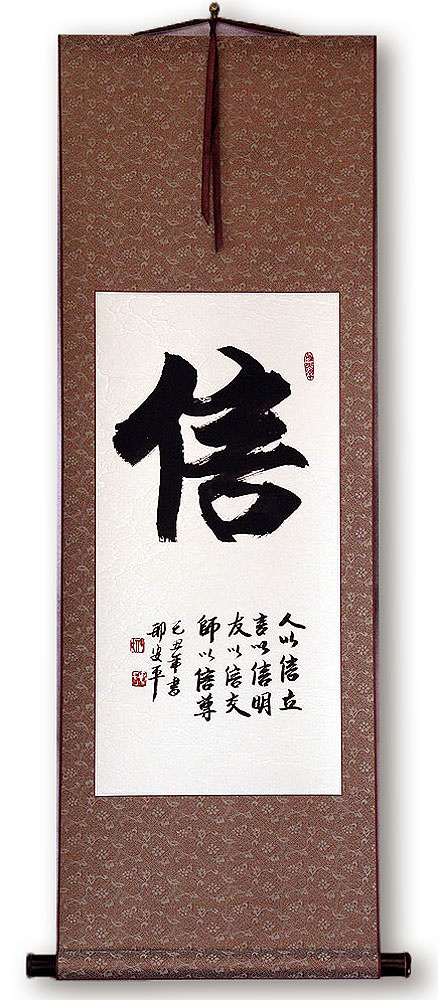 信
人以信立
言以信明
友以信交
師以信尊
己丑年書
邢安平